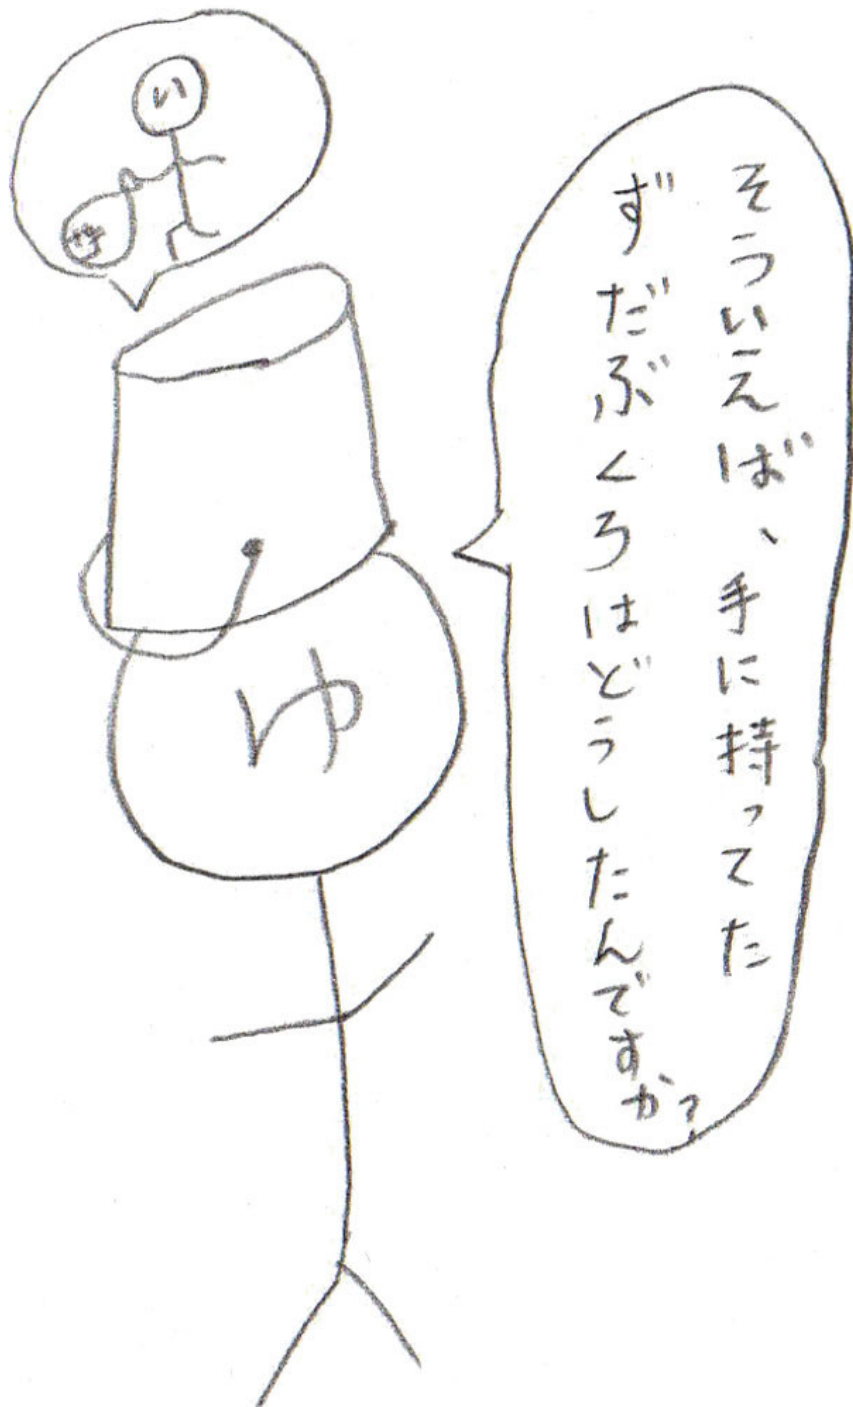 そういえば、手に持ってた
ずだぶくろはどうしたんですか?
い
ゆ